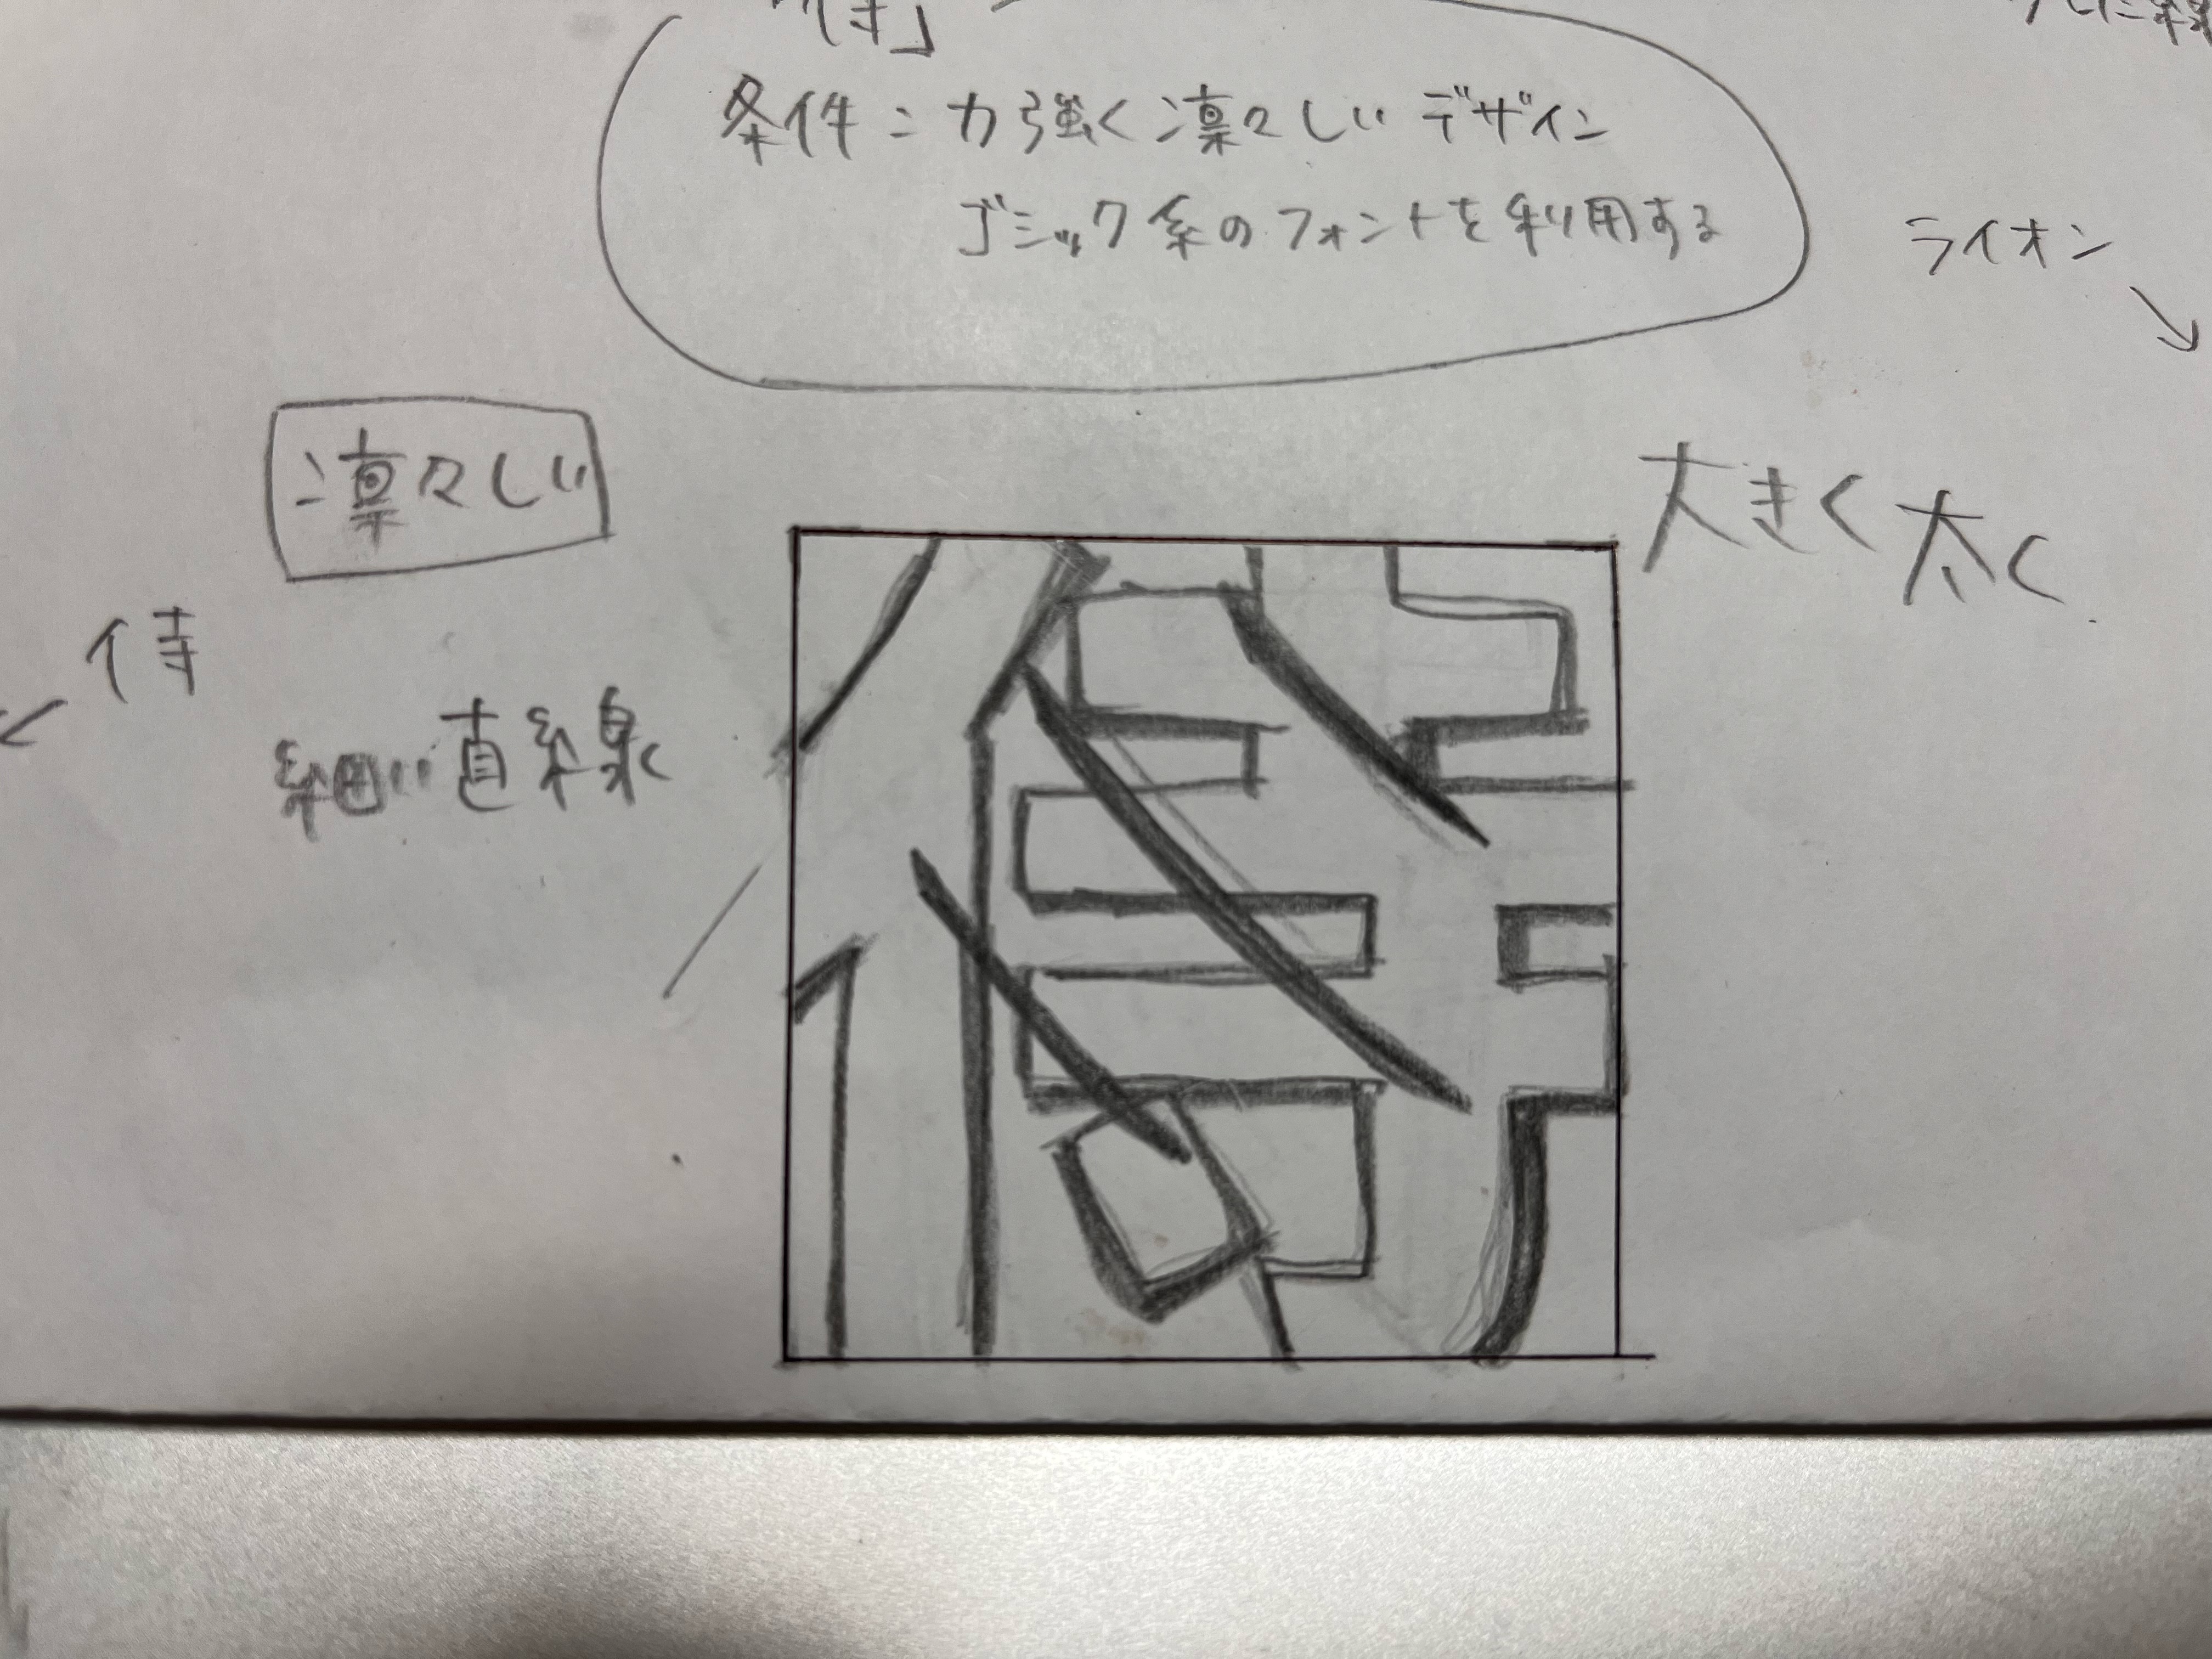 侍」
条件：力強く凛々しいデザイン
ゴシック系のフォントを利用する
ライオン
凛々しい
大きく太く
侍
細い直線
侍